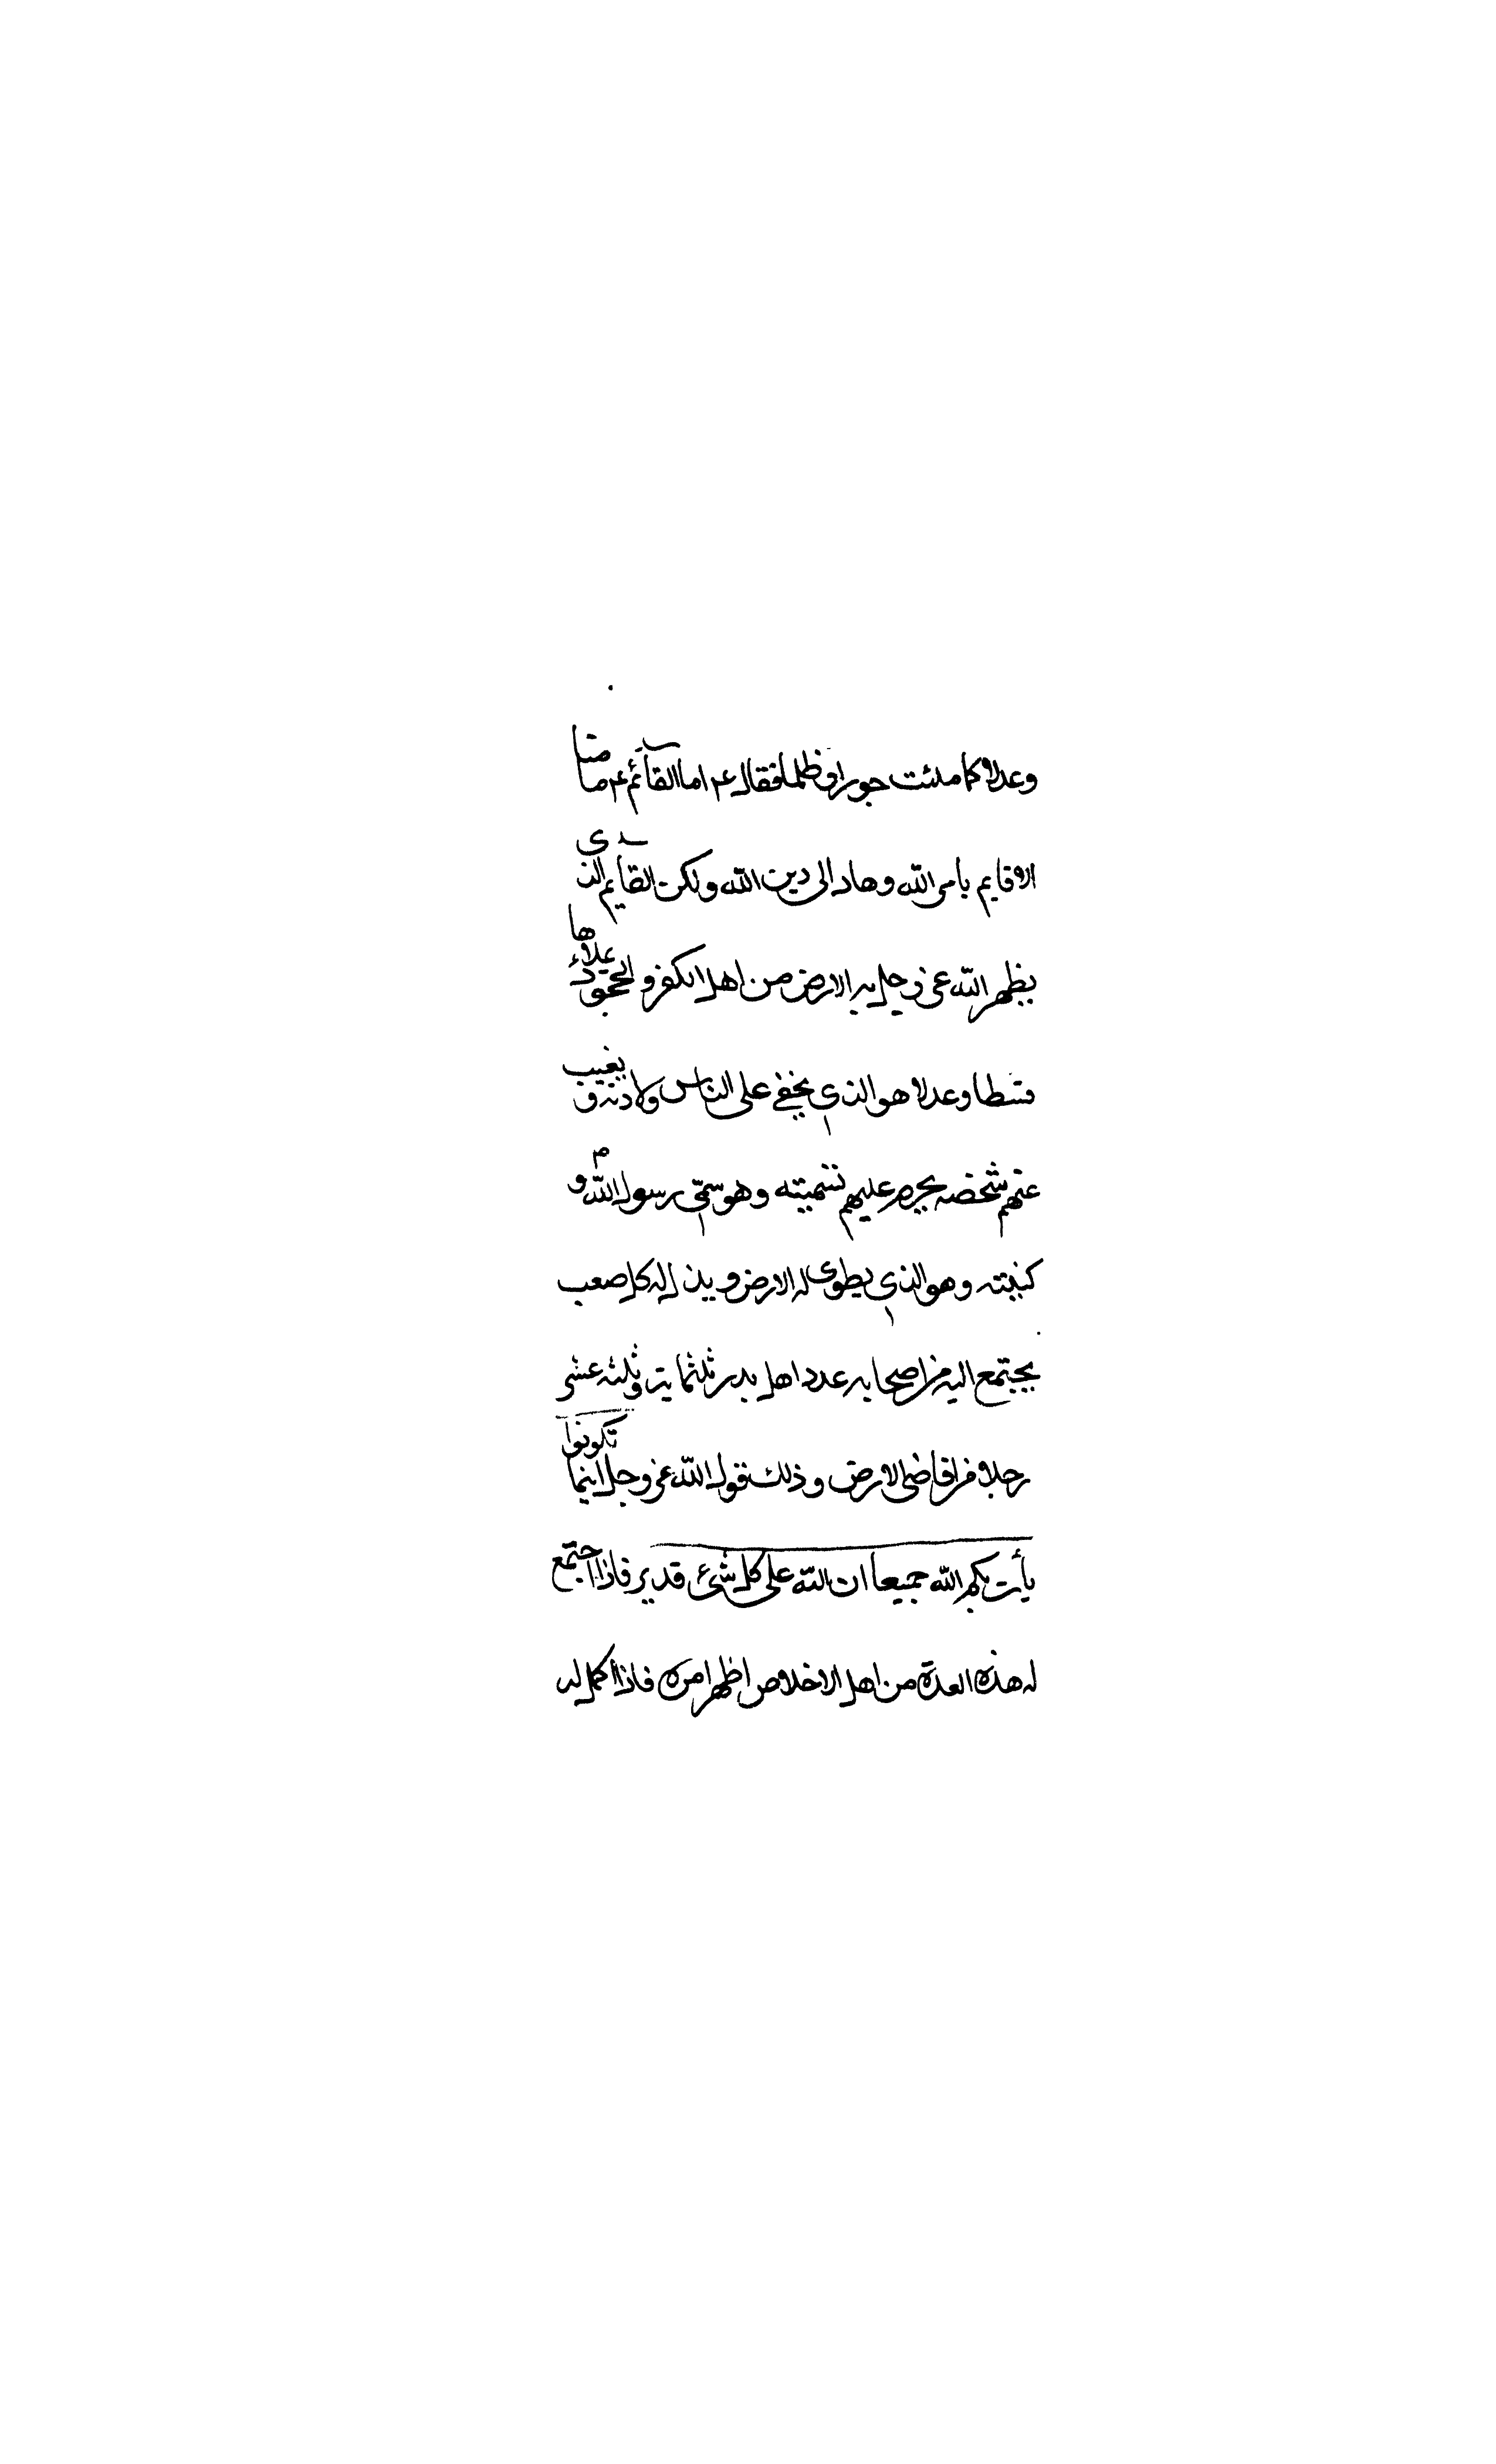 وعدلا كما ملئت جورا وظلما فقال ع اما القائم ع ما منا
الا قايم بامر الله وهاد الى دين الله ولكن القايم الذى
يظهر الله عز وجل به الارض من اهل الكفر والجحود يملاءها
قسطا وعدلا هو الذي يخفى على الناس ولادته ويغيب
عنهم شخصه يحرم عليهم تسميته وهو سمّي رسول الله ص و
كنيته وهو الذي يطوى له الارض ويذل له كل صعب
يجتمع اليه من اصحابه عدد اهل بدر ثلثماية وثلثه عشر
رجلا من اقاضى الارض وذلك قول الله عز وجل اينما تكونوا
يأت بكم الله جميعا ان الله على كل شىء قدير فاذا اجتمع
له هذه العدة من اهل الاخلاص اظهر امره فاذا اكمل له